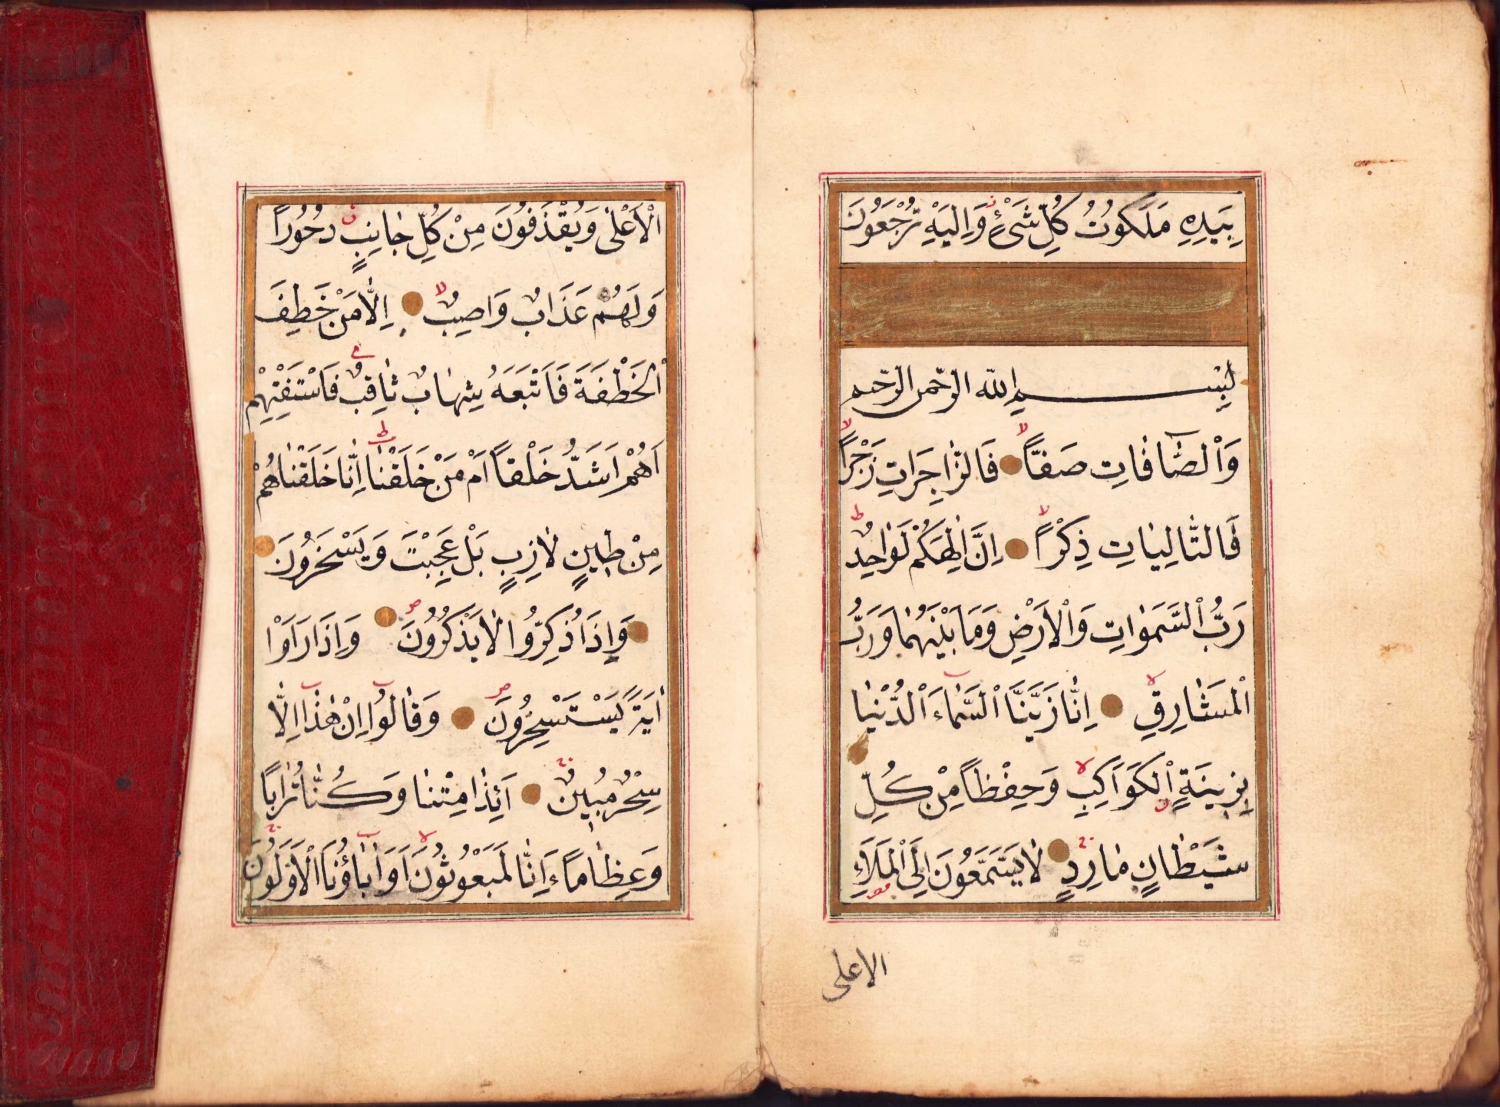 بِيَدِهِ مَلَكُوتُ كُلِّ شَیْءٍ وَاِلَيْهِ تُرْجَعُونَ
بِسْمِ اللّٰه الرّحمن الرّحيم
وَالصَّافَّاتِ صَفًّا فَالزَّاجِرَاتِ زَجْرًا
فَالتَّالِيَاتِ ذِكْرًا اِنَّ اِلٰهَكُمْ لَوَاحِدٌ
رَبُّ السَّمٰوَاتِ وَالْاَرْضِ وَمَا بَيْنَهُمَا وَرَبُّ
الْمَشَارِقِ اِنَّا زَيَّنَّا السَّمَاءَ الدُّنْيَا
بِزِينَةٍ الْكَوَاكِبِ وَحِفْظًا مِنْ كُلِّ
شَيْطَانٍ مَارِدٍ لَا يَسَّمَّعُونَ اِلَى الْمَلَاَءِ
الاعلى
الْاَعْلٰى وَيُقْذَفُونَ مِنْ كُلِّ جَانِبٍ دُحُورًا
وَلَهُمْ عَذَابٌ وَاصِبٌ اِلَّا مَنْ خَطِفَ
الْخَطْفَةَ فَاَتْبَعَهُ شِهَابٌ ثَاقِبٌ فَاسْتَفْتِهِمْ
اَهُمْ اَشَدُّ خَلْقًا اَمْ مَنْ خَلَقْنَا اِنَّا خَلَقْنَاهُمْ
مِنْ طِينٍ لَازِبٍ بَلْ عَجِبْتَ وَيَسْخَرُونَ
وَاِذَا ذُكِّرُوا لَا يَذْكُرُونَ وَاِذَا رَاَوْا
اٰيَةً يَسْتَسْخِرُونَ وَقَالُوا اِنْ هٰذَا اِلَّا
سِحْرٌ مُبِينٌ اَئِذَا مِتْنَا وَكُنَّا تُرَابًا
وَعِظَامًا ءَاِنَّا لَمَبْعُوثُونَ اَوَ اٰبَاؤُنَا الْاَوَّلُونَ